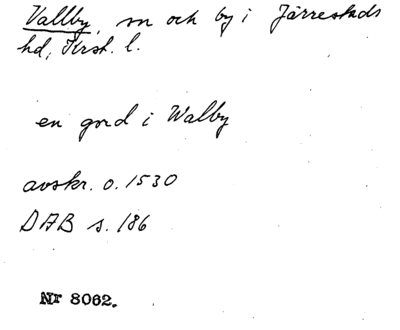 Vallby, sn och by i Järrestads
hd, Krist. l.
en gord i Walby
avskr. o. 1530
DAB s. 186
Nr 8062.